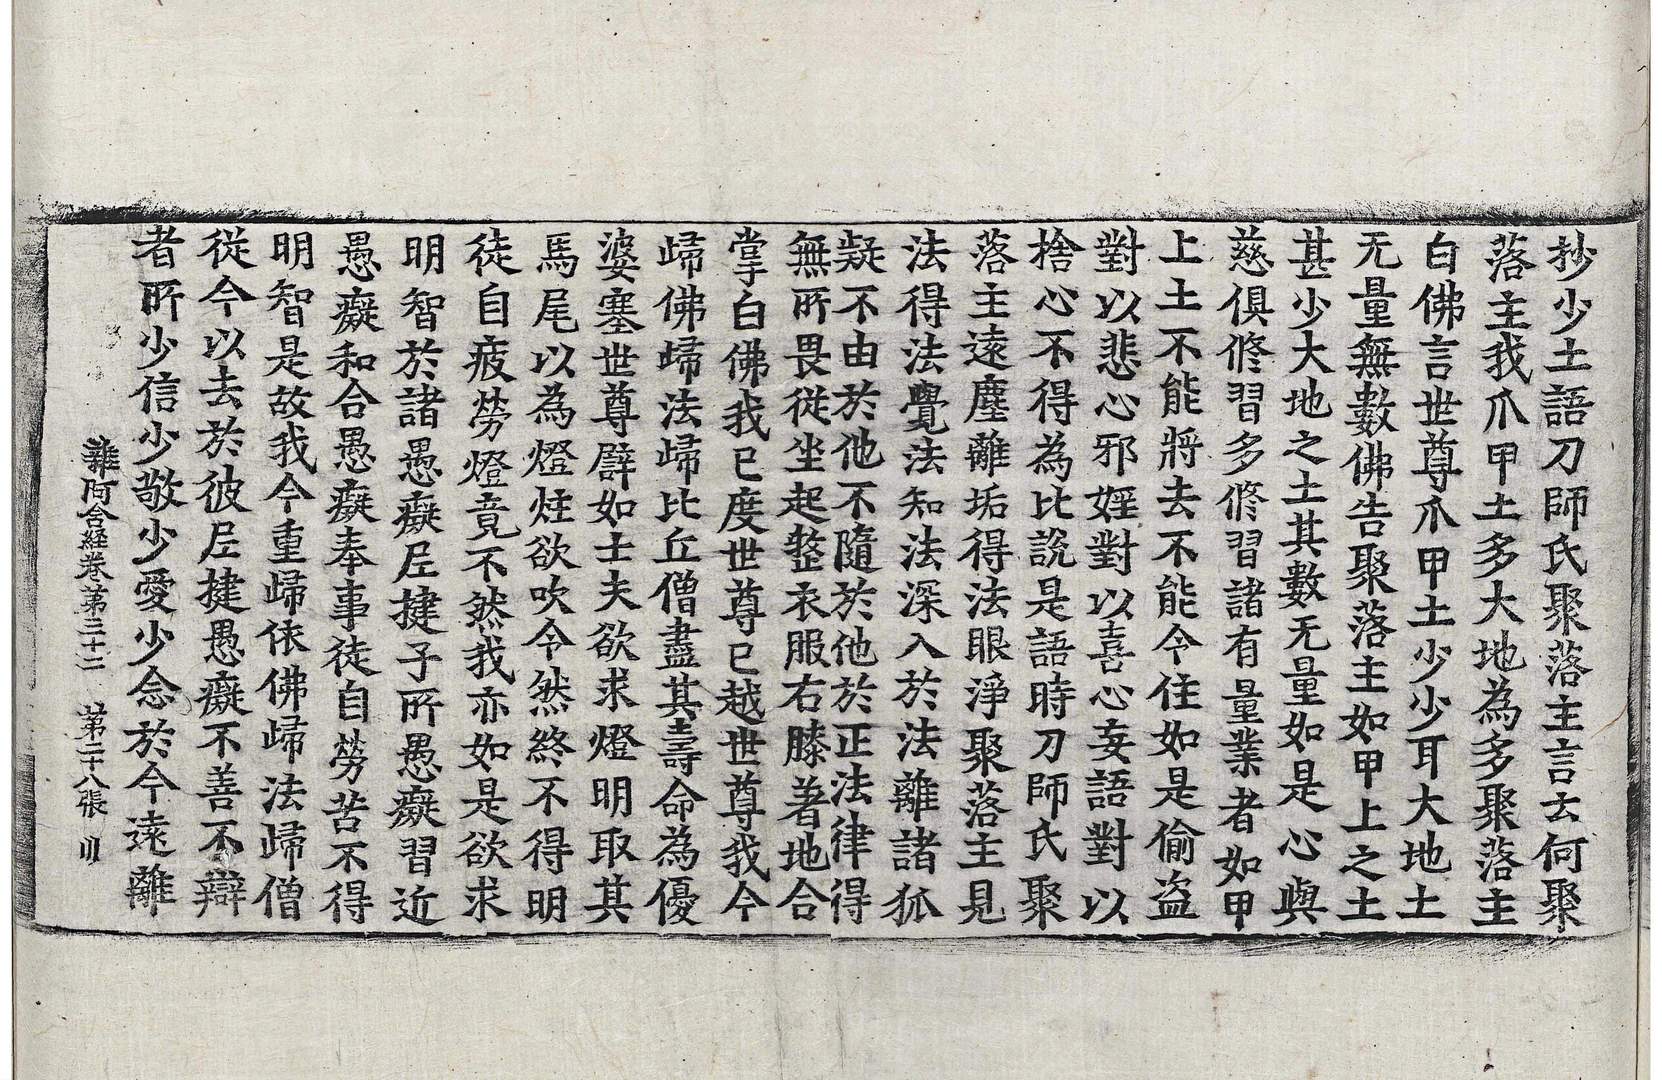 抄少土語刀師氏聚落主言云何聚
落主我爪甲土多大地為多聚落主
白佛言世尊爪甲土少少耳大地土
无量無數佛告聚落主如甲上之土
甚少大地之土其數无量如是心與
慈俱修習多修習諸有量業者如甲
上土不能將去不能令住如是偷盜
對以悲心邪婬對以喜心妄語對以
捨心不得為比說是語時刀師氏聚
落主遠塵離垢得法眼淨聚落主見
法得法覺法知法深入於法離諸狐
疑不由於他不隨於他於正法律得
無所畏從坐起整衣服右膝著地合
掌白佛我已度世尊已越世尊我今
歸佛歸法歸比丘僧盡其壽命為優
婆塞世尊譬如士夫欲求燈明取其
馬尾以為燈炷欲吹令然終不得明
徒自疲勞燈竟不然我亦如是欲求
明智於諸愚癡𡰱揵子所愚癡習近
愚癡和合愚癡奉事徒自勞苦不得
明智是故我今重歸依佛歸法歸僧
從今以去於彼𡰱揵愚癡不善不辯
者所少信少敬少愛少念於今遠離
雜阿含經卷第三十二 第二十八張 川